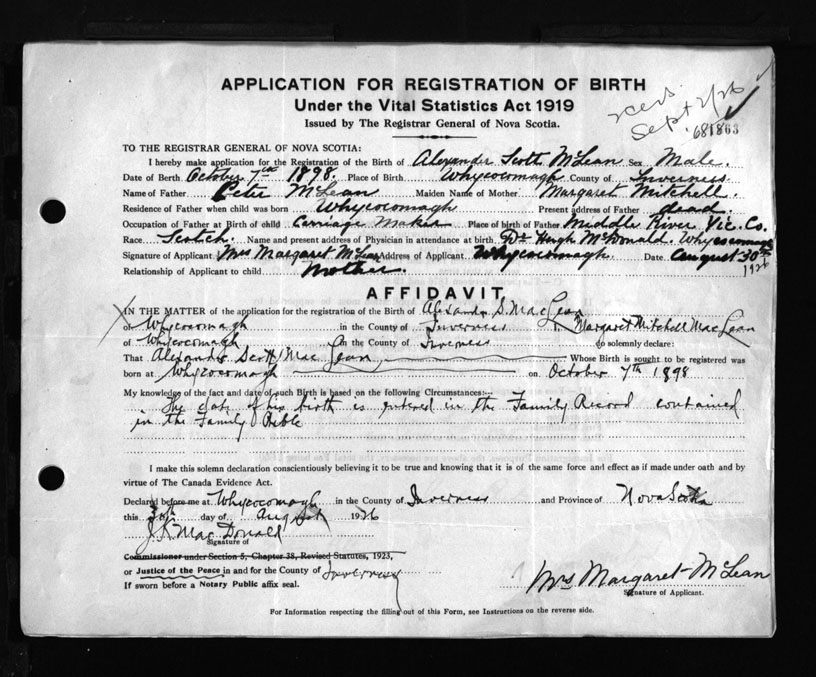 APPLICATION FOR REGISTRATION OF BIRTH
Under the Vital Statistics Act 1919
Issued by The Registrar General of Nova Scotia.
Sept 2/26
681863
TO THE REGISTRAR GENERAL OF NOVA SCOTIA:
I hereby make application for the Registration of the Birth of Alexander Scott McLean Sex Male.
Date of Birth October 7th 1898. Place of Birth Whycocomagh County of Inverness.
Name of Father Peter McLean Maiden Name of Mother Margaret Mitchell.
Residence of Father when child was born Whycocomagh Present address of Father dead.
Occupation of Father at Birth of child Carriage Maker Place of birth of Father Middle River Vic. Co.
Race Scotch. Name and present address of Physician in attendance at birth Dr Hugh McDonald. Whycocomagh
Signature of Applicant Mrs Margaret McLean Address of Applicant Whycocomagh. Date August 30th
1926
Relationship of Applicant to child Mother.
AFFIDAVIT
IN THE MATTER of the application for the registration of the Birth of Alexander S. MacLean
of Whycocomagh in the County of Inverness I, Margaret Mitchell MacLean
of Whycocomagh in the County of Inverness do solemnly declare:
That Alexander Scott MacLean, Whose Birth is sought to be registered was
born at Whycocomagh on October 7th 1898
My knowledge of the fact and date of such Birth is based on the following Circumstances:
The date of his birth is entered in the Family Record contained
in the Family Bible
I make this solemn declaration conscientiously believing it to be true and knowing that it is of the same force and effect as if made under oath and by
virtue of The Canada Evidence Act.
Declared before me at Whycocomagh in the County of Inverness and Province of Nova Scotia
this 30th day of August 1926
J. MacDonald
Signature of
Commissioner under Section 5, Chapter 38, Revised Statutes, 1923,
or Justice of the Peace in and for the County of Inverness
If sworn before a Notary Public affix seal.
Mrs Margaret McLean
Signature of Applicant.
For Information respecting the filling out of this Form, see Instructions on the reverse side.